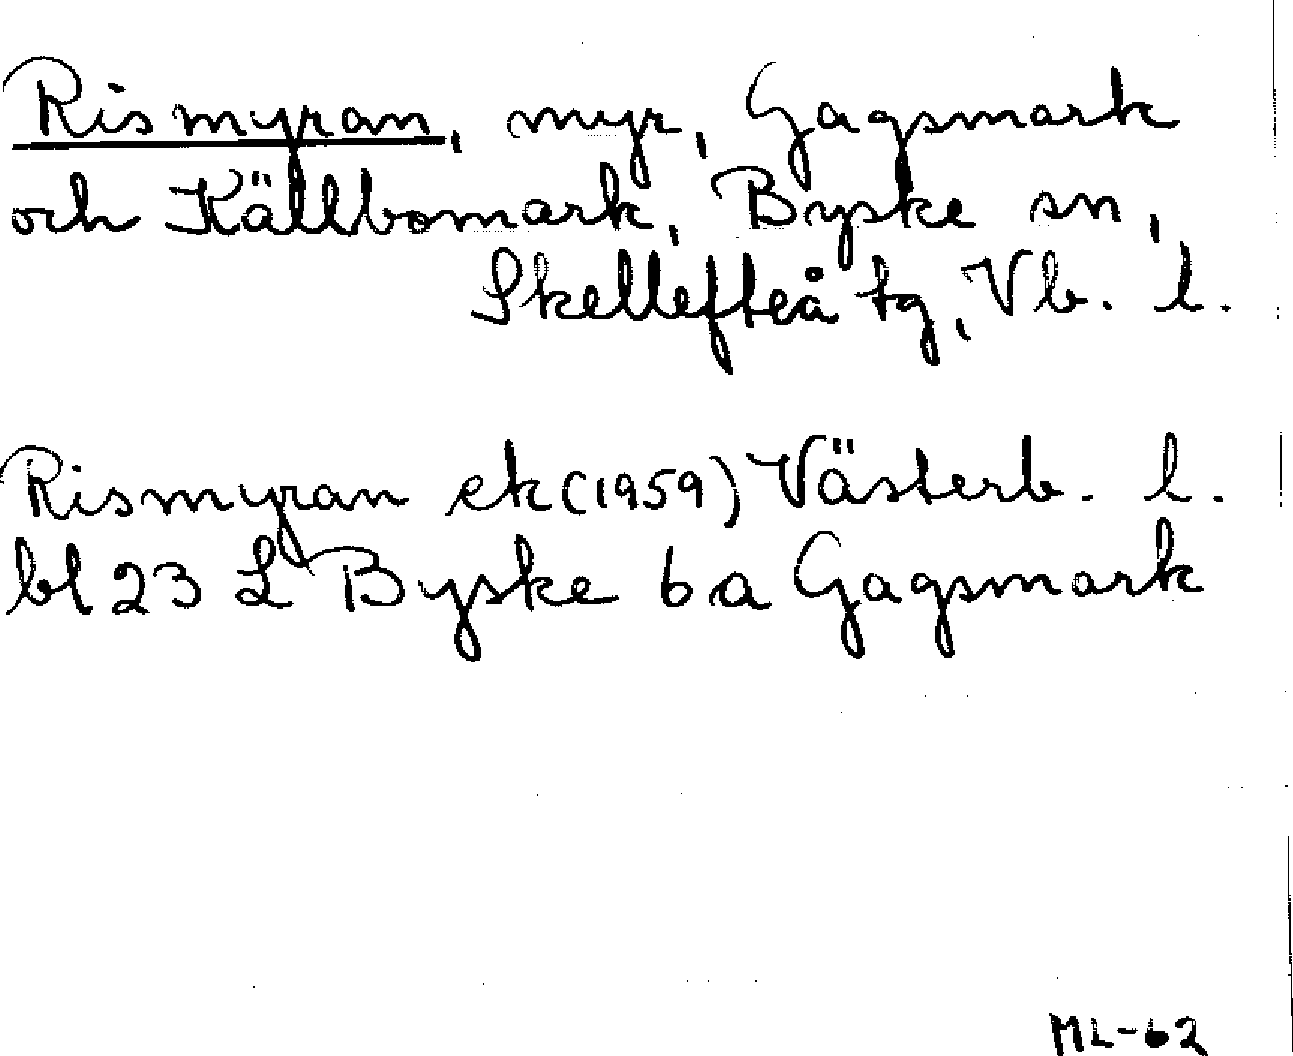 Rismyran, myr, Gagsmark
och Källbomark, Byske sn,
Skellefteå tg, Vb. l.
Rismyran ek (1959) Västerb. l.
bl 23 L Byske 6 a Gagsmark
ML-62